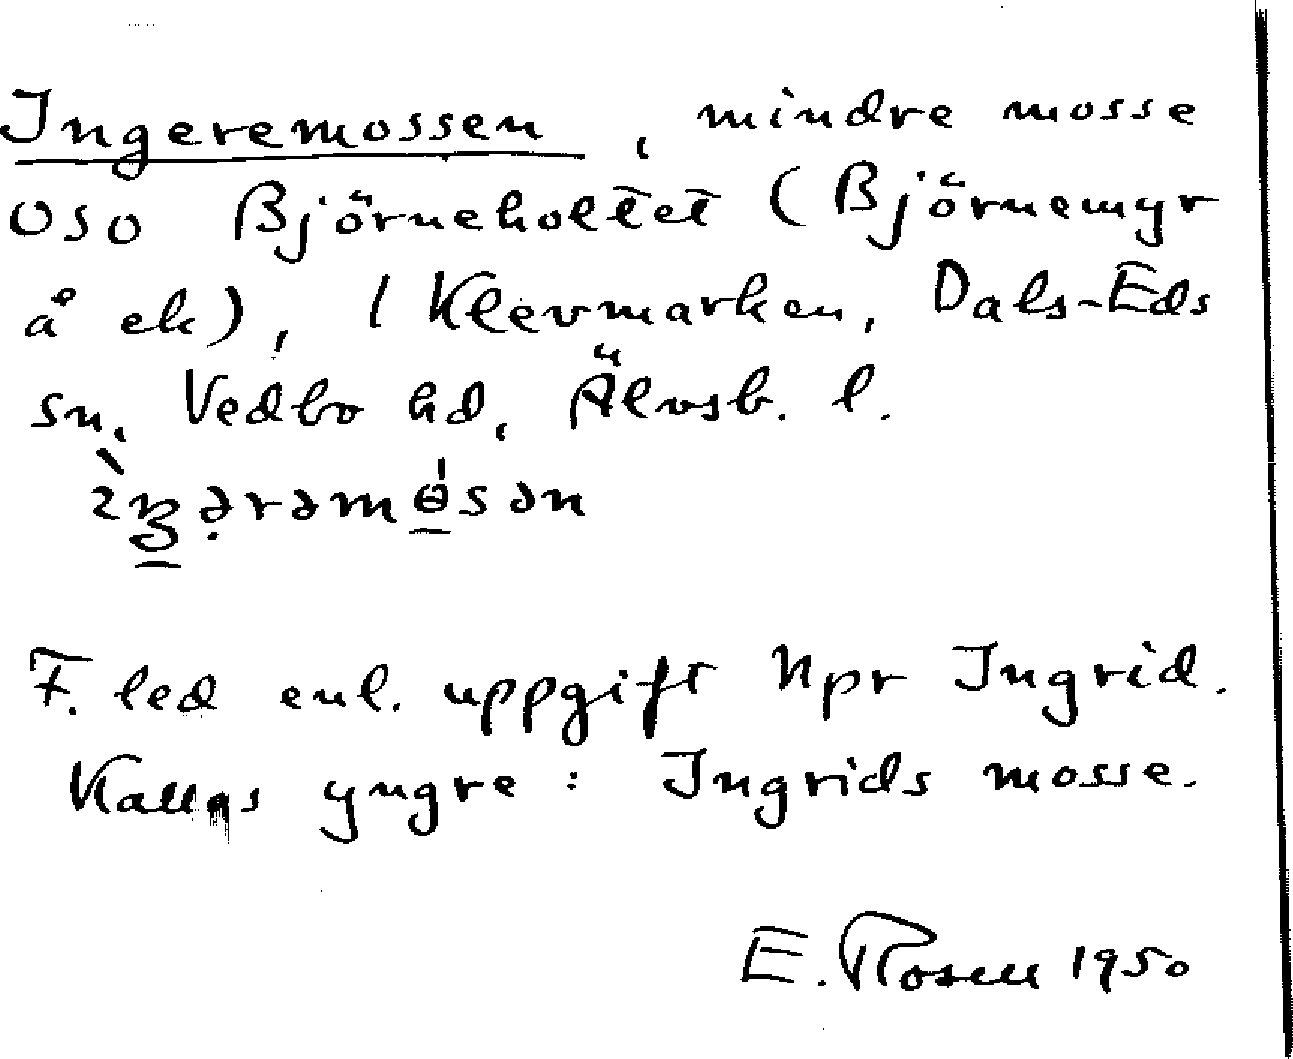 Ingeremossen, mindre mosse
OSO Björneholtet (Björnemyr
å ek), 1 Klevmarken, Dals-Eds
sn, Vedbo hd, Älvsb. l.
F. led enl. uppgift npr Ingrid.
Kallas yngre: Ingrids mosse.
E. Rosell 1950